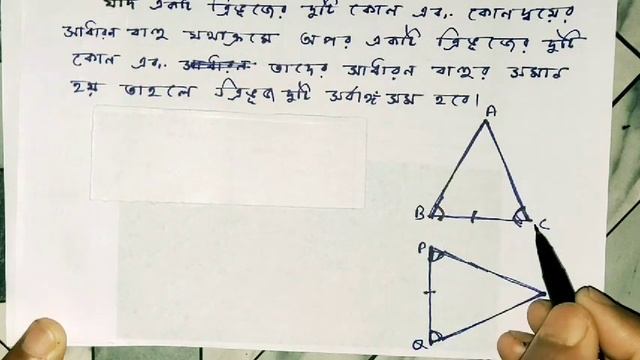 যদি একটি ত্রিভুজের দুটি কোন এবং কোনদ্বয়ের
সাধারন বাহু যথাক্রমে অপর একটি ত্রিভুজের দুটি
কোন এবং তাদের সাধারন বাহুর সমান
হয় তাহলে ত্রিভুজ দুটি সর্বাঙ্গ সম হবে।
A
B
C
P
Q